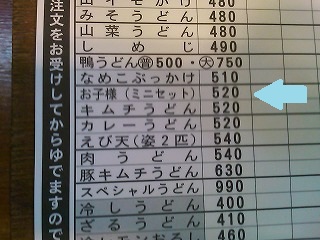 注文をお受けしてからゆでますので
山イモかけ 480
みそうどん 480
山菜うどん 480
しめじ 490
鴨うどん 普500・大750
なめこぶっかけ 510
お子様(ミニセット) 520
キムチうどん 520
カレーうどん 520
えび天(姿2匹) 540
肉うどん 540
豚キムチうどん 630
スペシャルうどん 990
冷しうどん 400
ざるうどん 410
冷レモンおろし 460